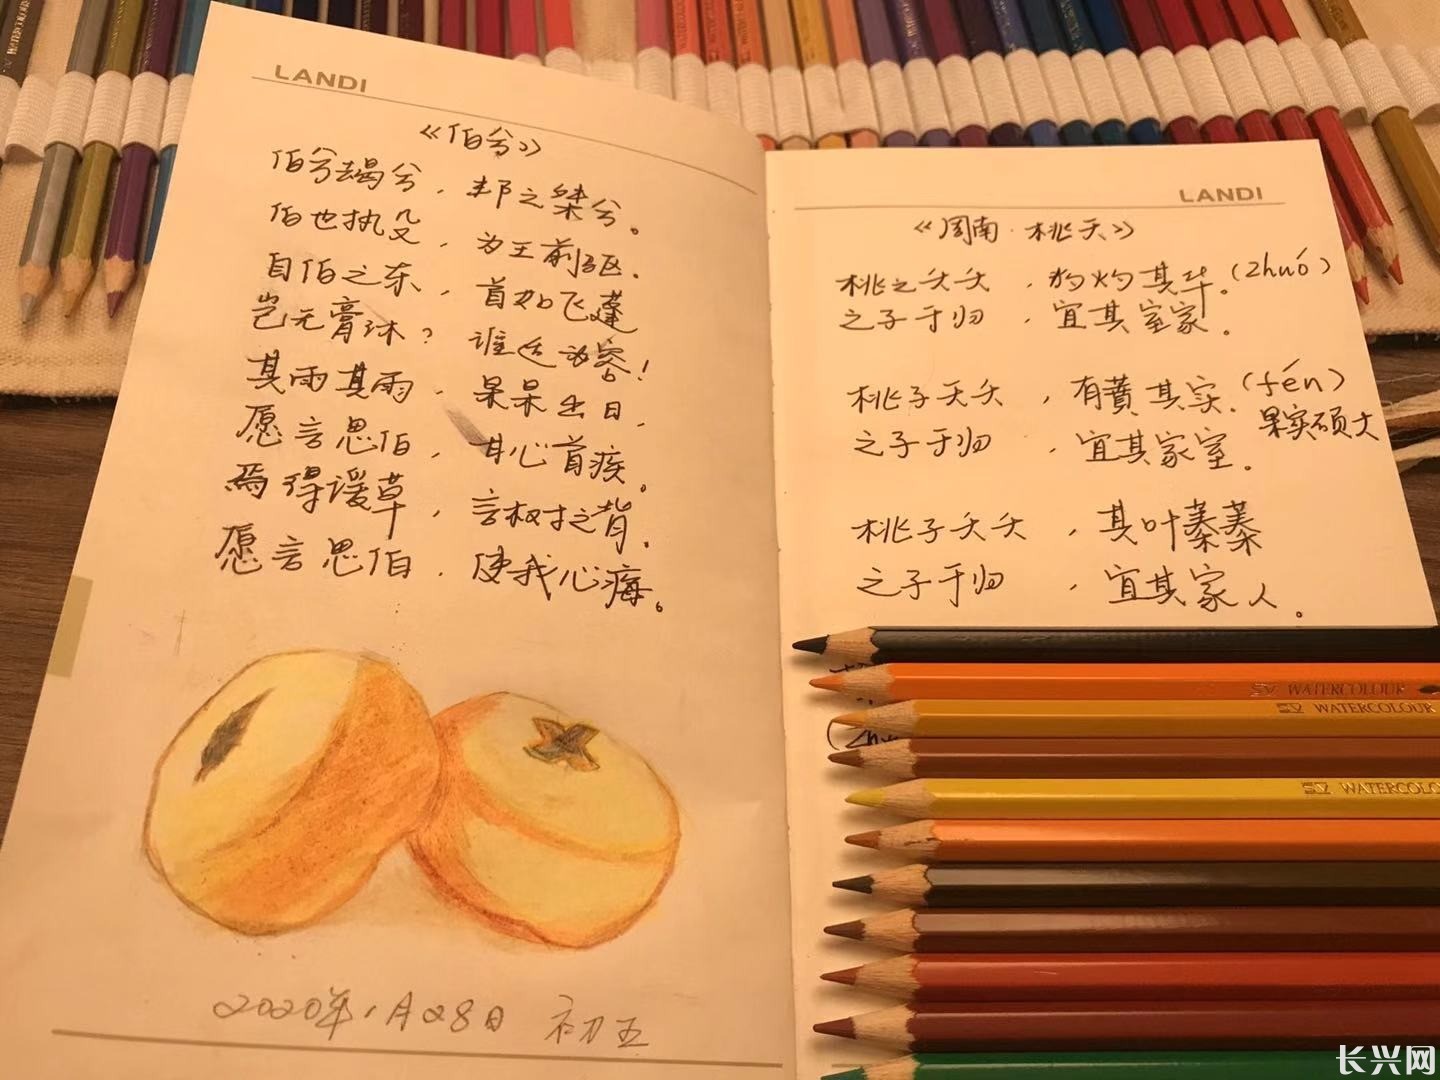 LANDI
《伯兮》
伯兮朅兮，邦之桀兮。
伯也执殳，为王前驱.
自伯之东，首如飞蓬
岂无膏沐？谁适为容！
其雨其雨，杲杲出日，
愿言思伯，甘心首疾。
焉得谖草，言树之背.
愿言思伯.使我心痗。
2020年1月28日 初五
LANDI
《周南·桃夭》
桃之夭夭，灼灼其华。(zhuó)
之子于归，宜其室家。
桃子夭夭，有蕡其实.(fén)
果实硕大
之子于归，宜其家室.
桃子夭夭，其叶蓁蓁
之子于归，宜其家人。
WATERCOLOUR
WATERCOLOUR
WATERCOLO
长兴网